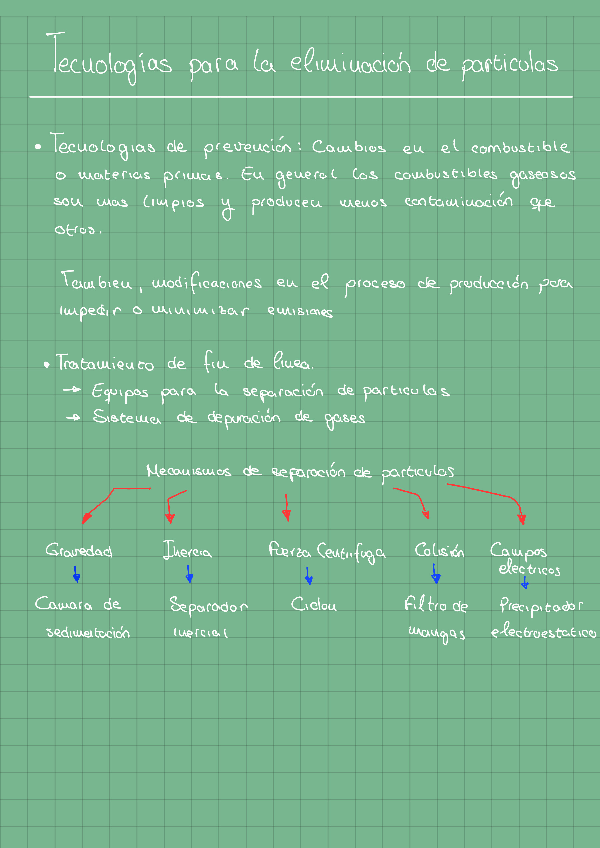 Tecnologías para la eliminación de particulas
• Tecnologias de prevención: Cambios en el combustible
o materias primas. En general los combustibles gaseosos
son mas limpios y producen menos contaminación que
otros.
Tambien, modificaciones en el proceso de producción para
impedir o minimizar emisiones
• Tratamiento de fin de linea.
→ Equipos para la separación de particulas
→ Sistema de depuración de gases
Mecanismos de separación de particulas
Gravedad Inercia Fuerza Centrifuga Colisión Campos
electricos
Camara de Separador Ciclon Filtro de Precipitador
sedimentación inercial mangas electroestatico